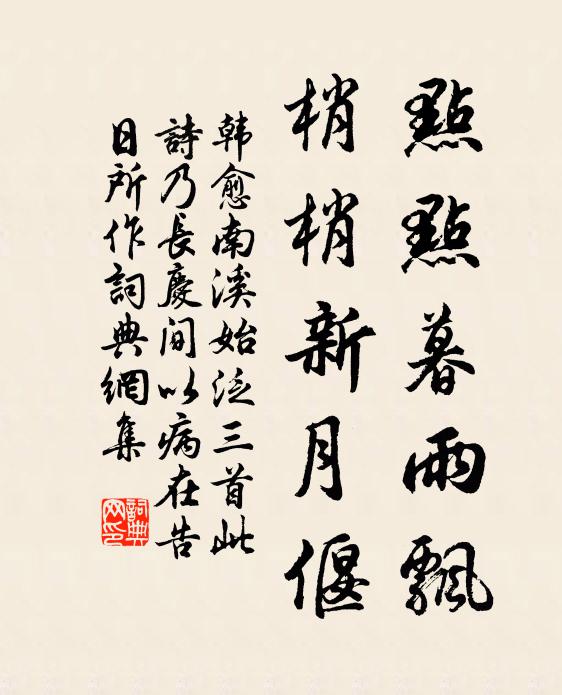 點點暮雨飄
梢梢新月偃
韓愈南溪始泛三首此
詩乃長慶間以病在告
日所作詞典網集
詞典
网印